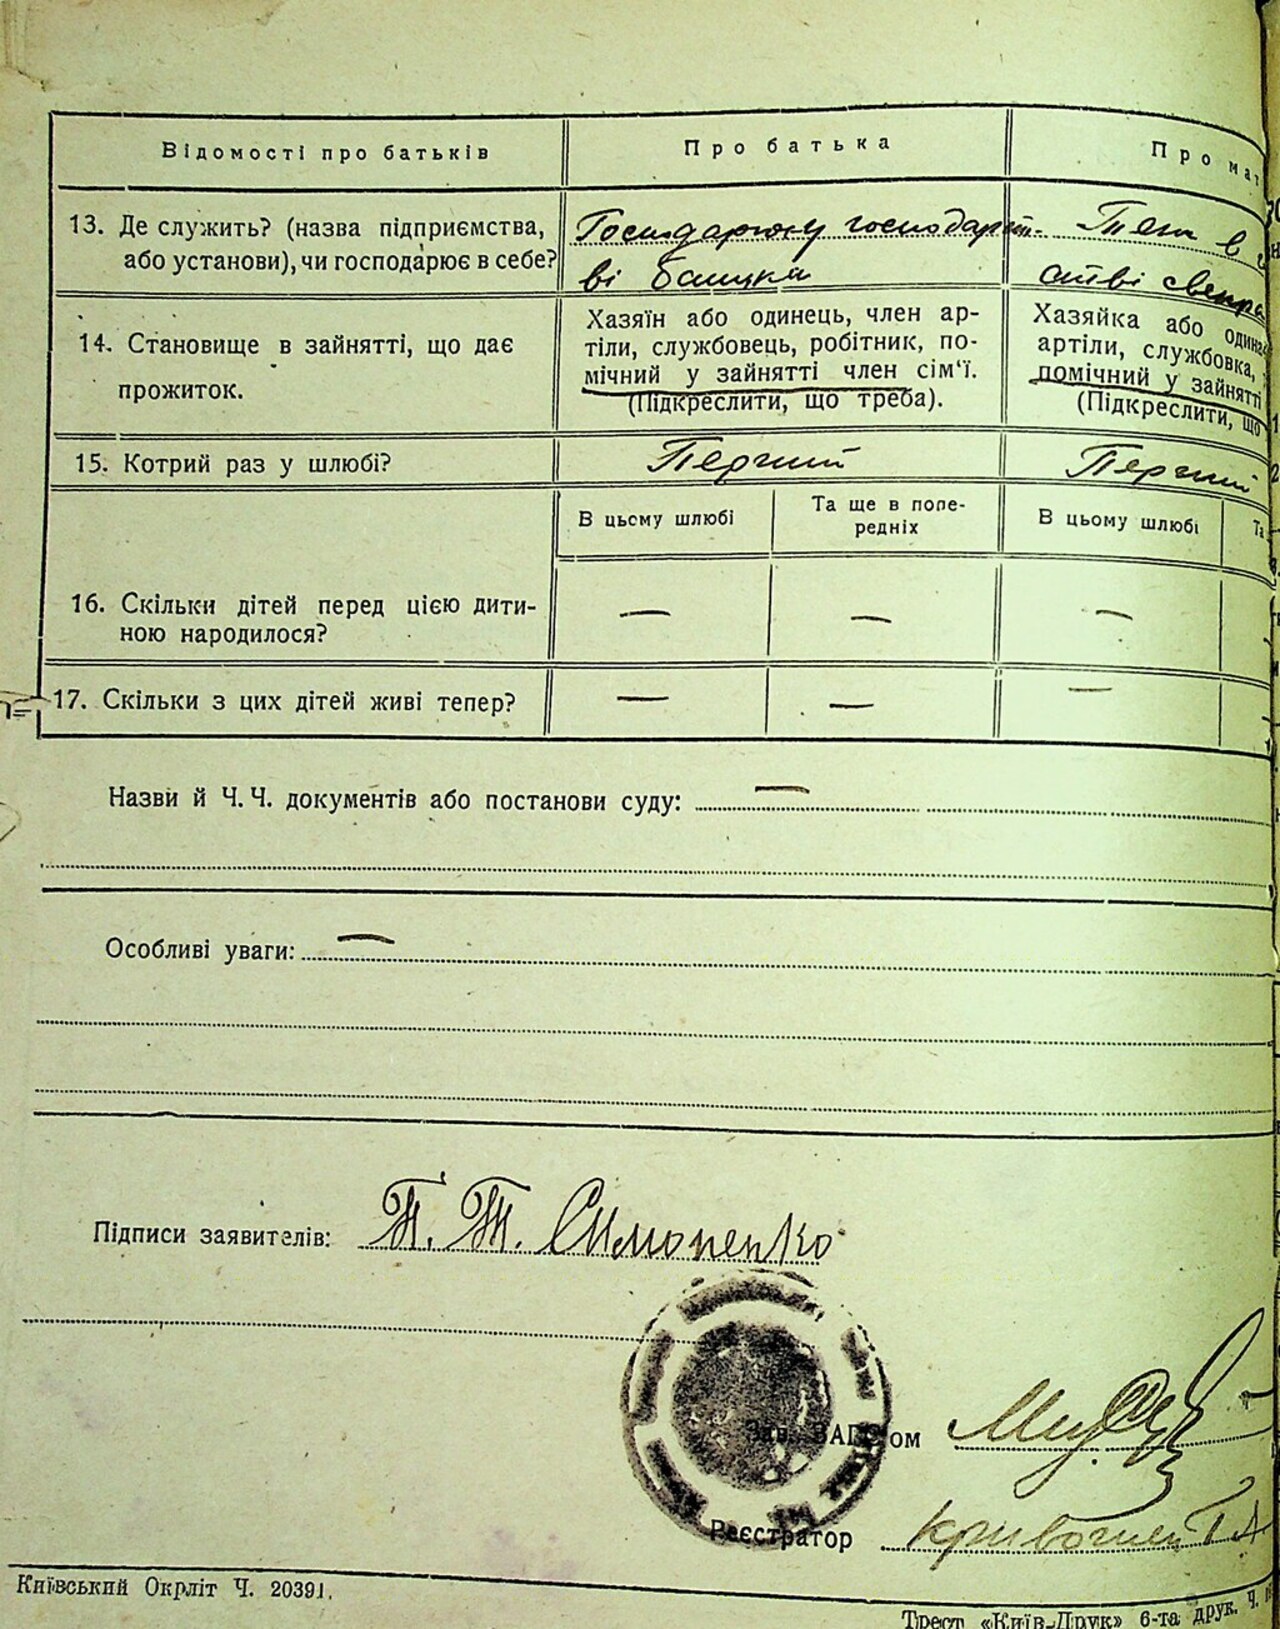 Відомості про батьків
Про батька
Про мат
13. Де служить? (назва підприємства,
або установи), чи господарює в себе?
Господарюу господарст-
ві батька
Теж в
стві свекра
14. Становище в зайнятті, що дає
прожиток.
Хазяїн або одинець, член ар-
тіли, службовець, робітник, по-
мічний у зайнятті член сім'ї.
(Підкреслити, що треба).
Хазяйка або одина
артіли, службовка,
помічний у зайнятті
(Підкреслити, що
15. Котрий раз у шлюбі?
Перший
Перший
В цьому шлюбі
Та ще в попе-
редніх
В цьому шлюбі
Та
16. Скільки дітей перед цією дити-
ною народилося?
— — —
17. Скільки з цих дітей живі тепер?
— — —
Назви й Ч. Ч. документів або постанови суду: —
Особливі уваги: —
Підписи заявителів: Т. Т. Симоненко
Зав. ЗАГС'ом
Реєстратор
Київський Окрліт Ч. 20391.
Трест «Київ-Друк» 6-та друк. Ч.